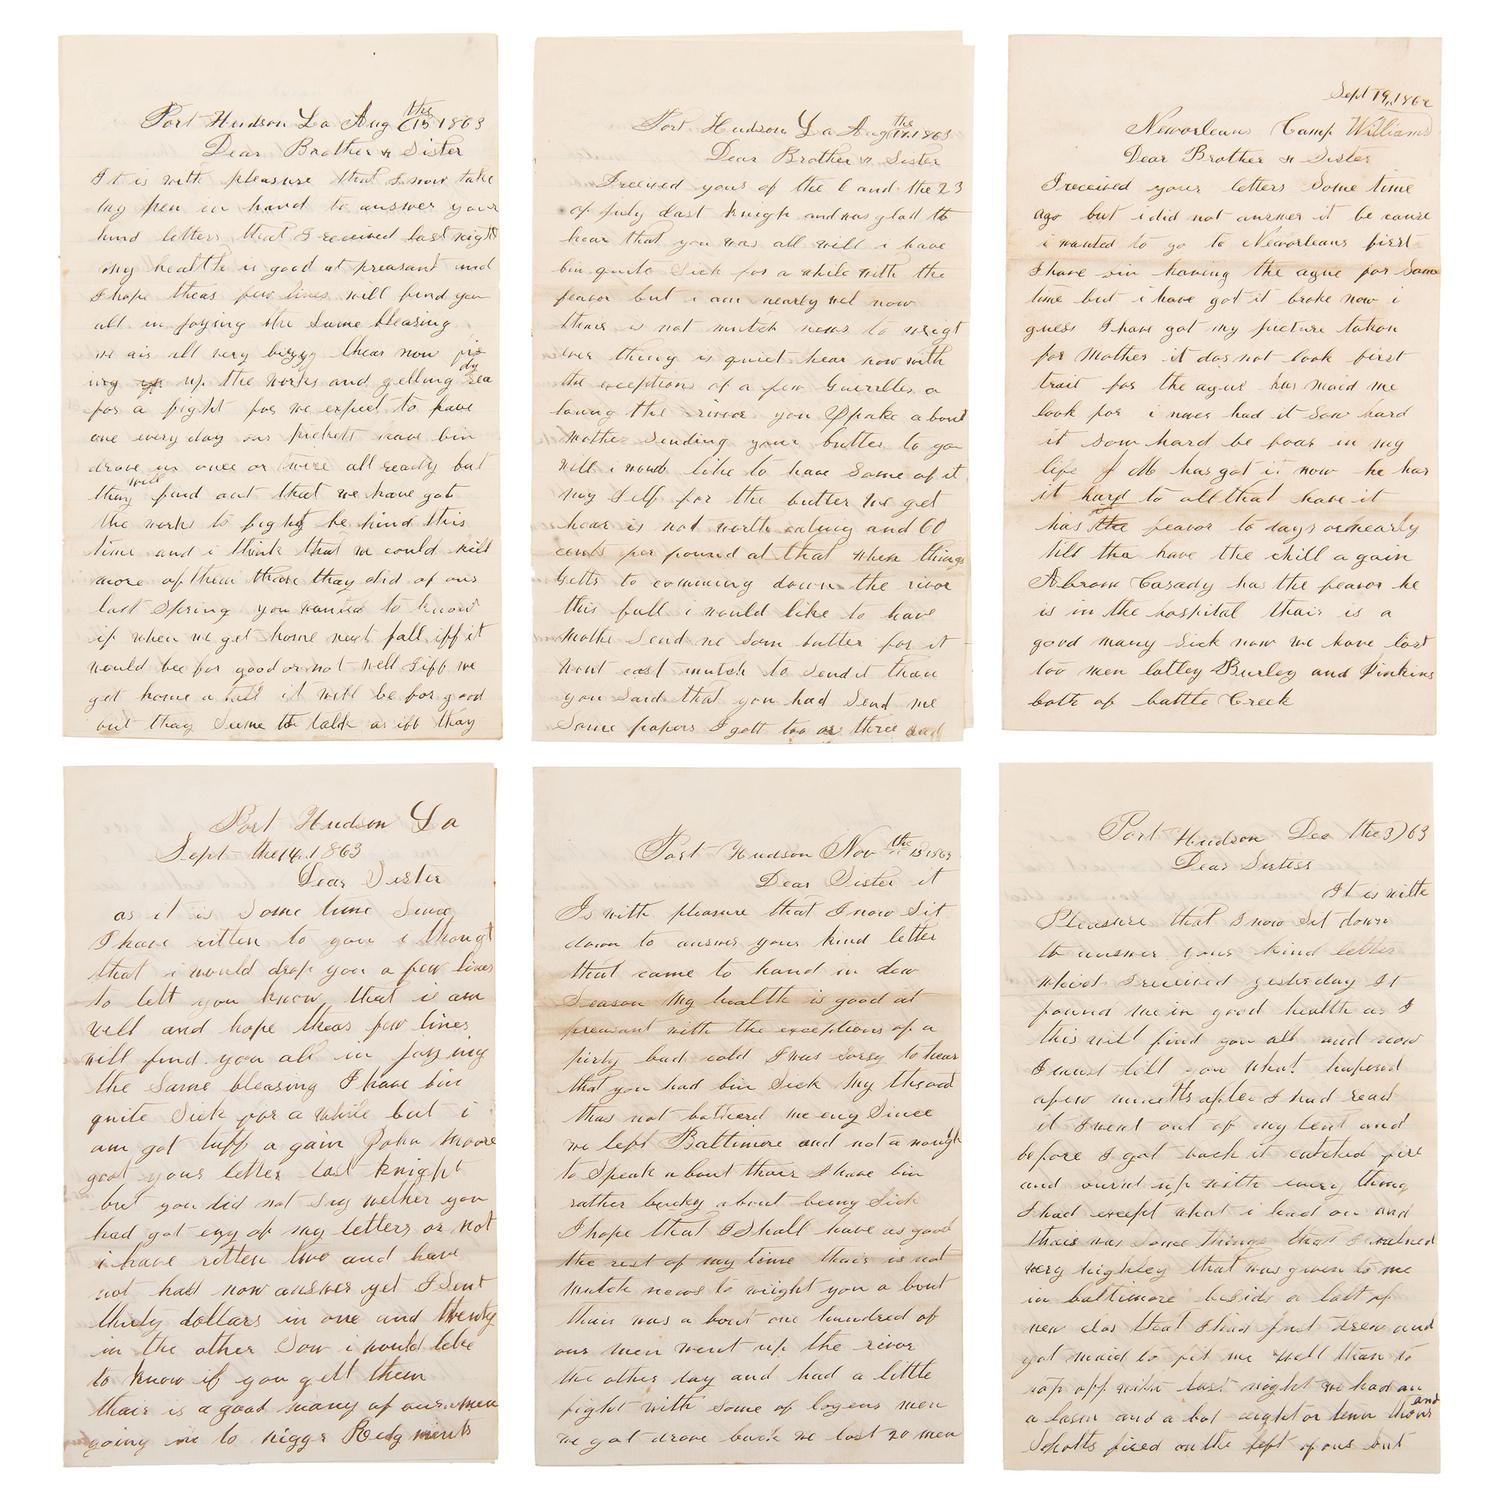 Port Hudson La Aug the 15 1863
Dear Brother & Sister
It is with pleasure that I now take
my pen in hand to answer your
kind letters that I received last night
my health is good at preasant and
I hope theas few lines will find you
all in joying the same bleasing
we air all very bizzy thear now fix
ing up the works and getting rea dy
for a fight for we expect to have
one every day our pickets have bin
drove in once or twice all ready but
thay will find out that we have got
the works to fight be hind this
time and i think that we could kill
more of them thare thay did of ours
last spring you wanted to know
if when we get home next fall iff it
would bee for good or not well Siff we
get home a tall it will be for good
but thay seeme to talk as iff thay
Port Hudson La Aug the 17 1863
Dear Brother & Sister
I received yours of the 6 and the 23
of july last knigh and was glad to
hear that you was all will i have
bin quite sick for a while with the
feavor but i am nearly wel now
thair is not mutch news to wright
ever thing is quiet hear now with
the exceptions of a few Guerrlles a
loung the rivor you spake about
mothe sending your butter to you
well i woud like to have some of it
my self for the butter we get
hear is not worth eating and 60
cents per pound at that when things
getts to comming down the rivor
this fall i would like to have
mothe send me som butter for it
wont cost mutch to send it than
you said that you had send me
some papers I gott too or three and
Sept 19, 1862
Neworleans Camp Williams
Dear Brother & Sister
I received your letters some time
ago but i did not answer it be cause
i wanted to go to Neworleans first
I have bin having the ague for some
time but i have got it broke now i
guess I have got my picture taken
for mother it dos not look first
trait for the ague has maid me
look for i never had it sow hard
it som hard be foar in my
life J M has got it now he has
it hard to all that have it
has the feavor to days or nearly
till tha have the chill a gain
Abrom Casady has the feavor he
is in the hospital thair is a
good many sick now we have lost
too men latley Burley and Pinkins
both of battle Creek
Port Hudson La
Sept the 14, 1863
Dear Sister
as it is some time since
I have ritten to you i thougt
that i would drop you a few lines
to lett you know that i am
well and hope theas few lines
will find you all in joying
the same bleasing I have bin
quite sick for a while but i
am got tuff a gain John Moore
goot your letter last knight
but you did not say wether you
had got eny of my letters or not
i have ritten two and have
not had now answer yet I sent
thirty dollars in one and twenty
in the other sow i would like
to know if you gett them
thair is a good many of our men
going in to nigge Redgments
Port Hudson Nov the 13 1863
Dear Sister it
Is with pleasure that I now sit
down to answer your kind letter
that came to hand in dew
season My health is good at
preasant with the exceptions of a
pirty bad cold I was sorry to hear
that you had bin sick My throad
thas not bothered me eny since
we left Baltimore and not a nough
to speak about thair I have bin
rather lucky about being sick
I hope that I shall have as good
the rest of my time thair is not
mutch news to wright you a bout
thair was a bout one hundred of
our men went up the rivor
the other day and had a little
fight with some of logens men
we got drove back we lost 20 men
Port Hudson Dec the 3) 63
Dear Sisters
It is with
Pleasure that I now sit down
to answer your kind letter
which I received yesterday It
found me in good health as I
this will find you all and now
I must tell you what hapend
a few minetts after I had read
it I went out of my tent and
before I got back it catched fire
and burnt up with every thing
I had except what i had on and
thair was some things that I valued
very highley that was given to me
in baltimore besids a lott of
new clos that I had just drew and
got maid to fit me well than to
top off with last night we had an
a larm and a bot aight or tenn thows and
Schotts fired on the left of ous but